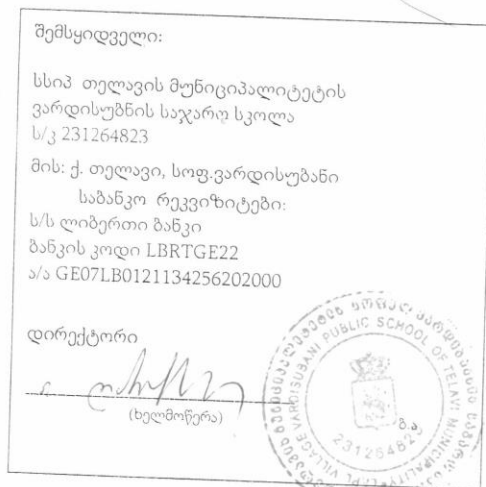 შემსყიდველი:
სსიპ თელავის მუნიციპალიტეტის
ვარდისუბნის საჯარო სკოლა
ს/კ 231264823
მის: ქ. თელავი, სოფ.ვარდისუბანი
საბანკო რეკვიზიტები:
ს/ს ლიბერთი ბანკი
ბანკის კოდი LBRTGE22
ა/ა GE07LB0121134256202000
დირექტორი
(ხელმოწერა)
ბ.ა
VILLAGE VARDISUBANI PUBLIC SCHOOL OF TELAVI MUNICIPALITY
231264823